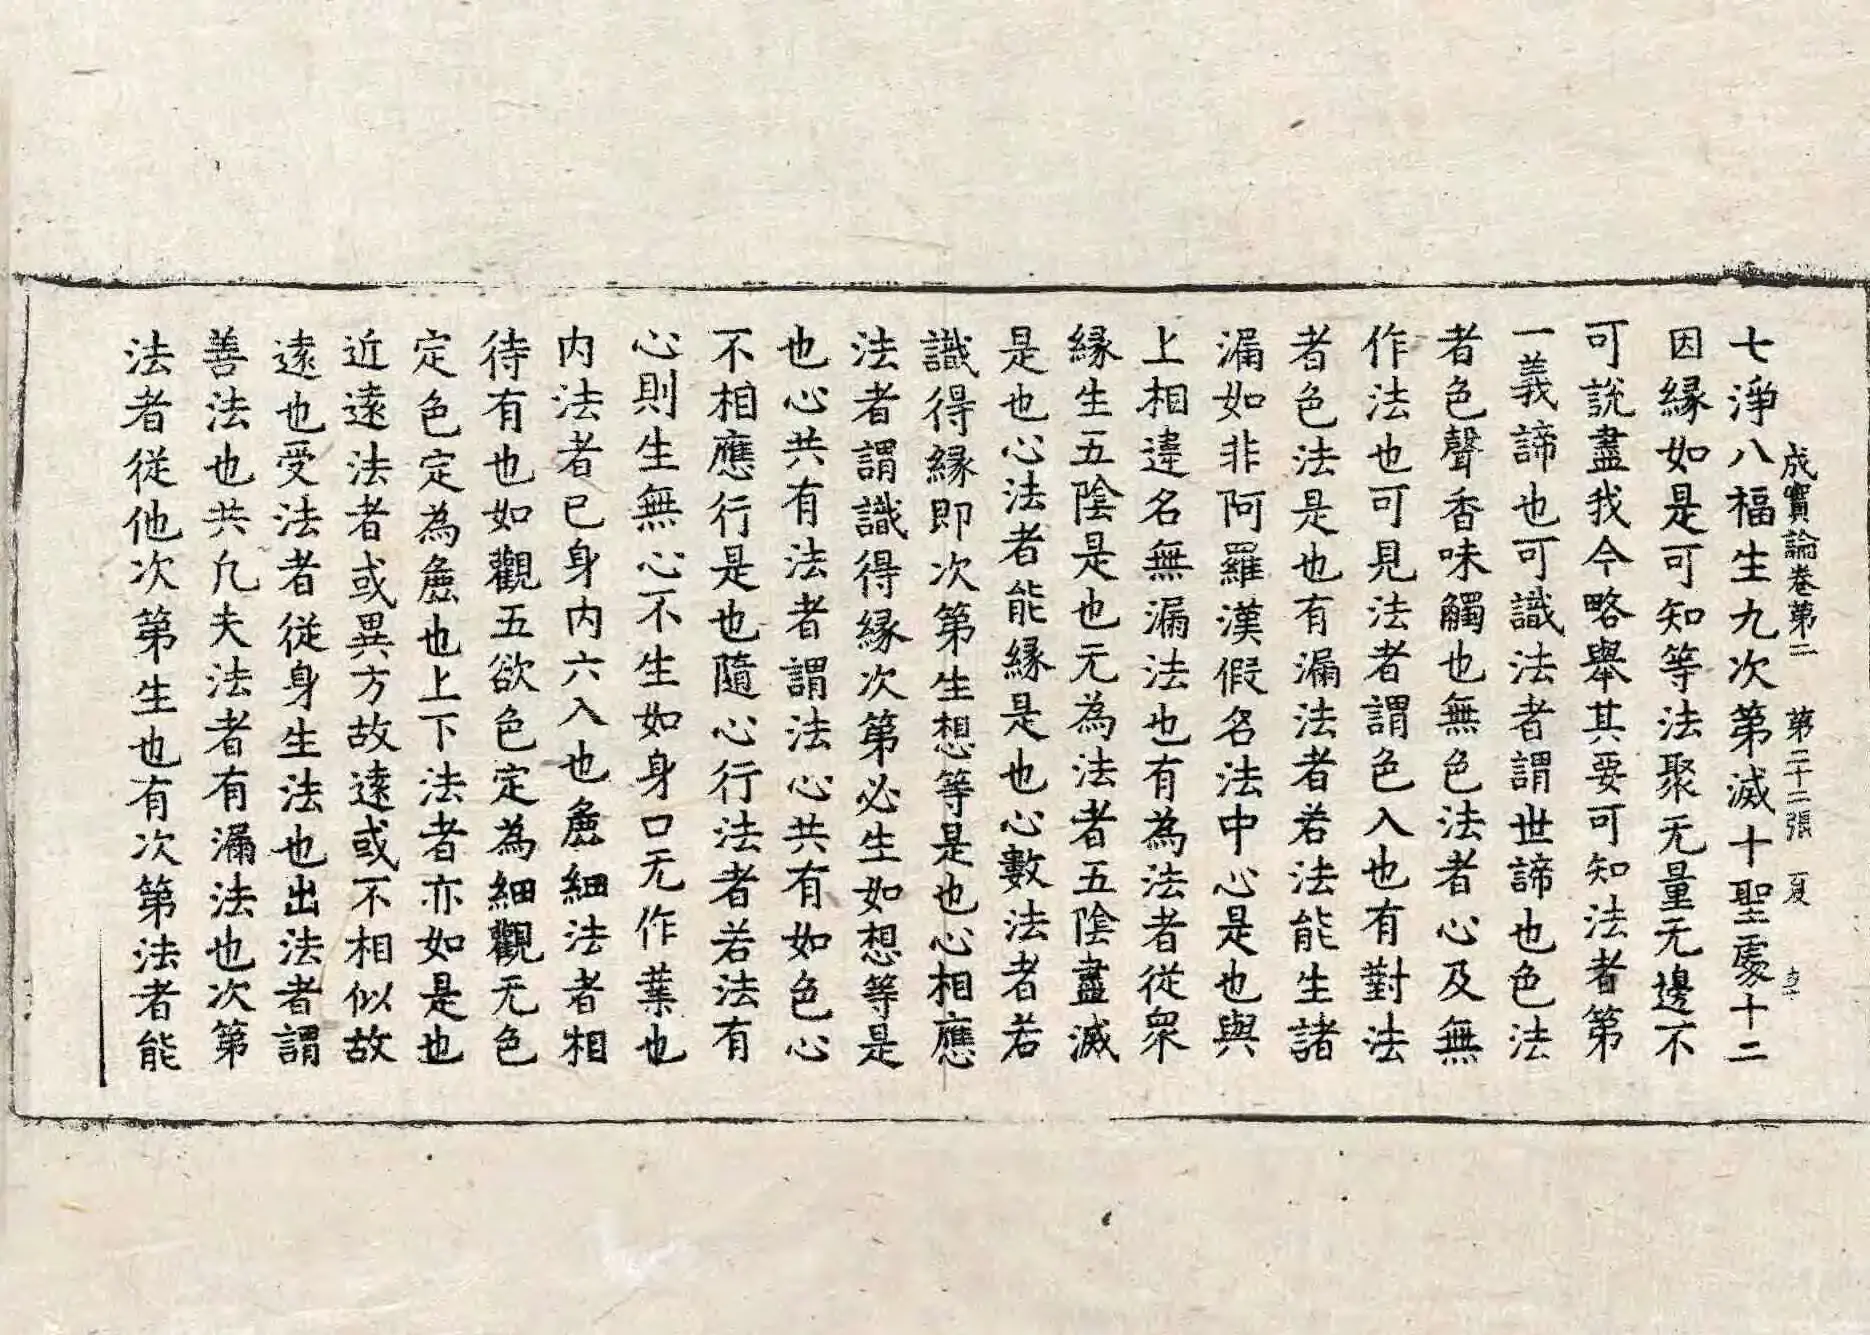 成實論卷第二 第二十二張 夏
七淨八福生九次第滅十聖處十二
因緣如是可知等法聚无量无邊不
可說盡我今略舉其要可知法者第
一義諦也可識法者謂世諦也色法
者色聲香味觸也無色法者心及無
作法也可見法者謂色入也有對法
者色法是也有漏法者若法能生諸
漏如非阿羅漢假名法中心是也與
上相違名無漏法也有為法者從眾
緣生五陰是也无為法者五陰盡滅
是也心法者能緣是也心數法者若
識得緣即次第生想等是也心相應
法者謂識得緣次第必生如想等是
也心共有法者謂法心共有如色心
不相應行是也隨心行法者若法有
心則生無心不生如身口无作業也
內法者已身內六入也麁細法者相
待有也如觀五欲色定為細觀无色
定色定為麁也上下法者亦如是也
近遠法者或異方故遠或不相似故
遠也受法者從身生法也出法者謂
善法也共凡夫法者有漏法也次第
法者從他次第生也有次第法者能